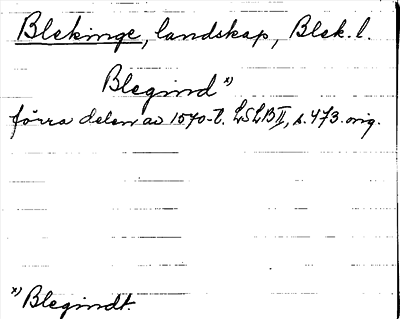 Blekinge, landskap, Blek. l.
Blegind x)
förra delen av 1570-t. LSLB II, s. 473. orig.
x) Blegindt.